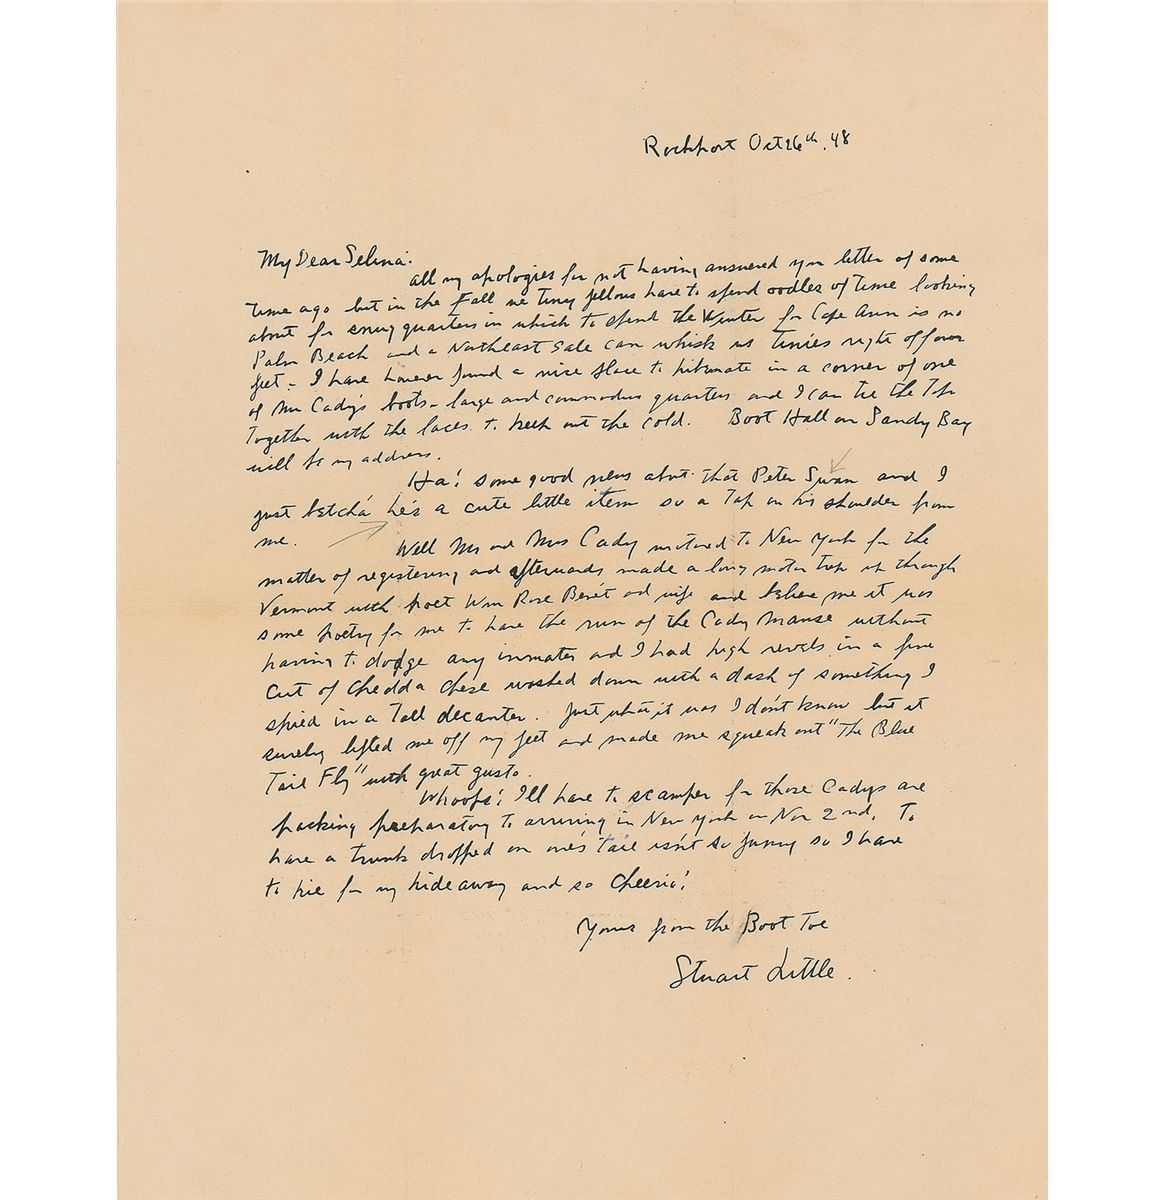 Rockport Oct 26th. 48
My Dear Selina:
All my apologies for not having answered your letter of some
time ago but in the Fall we tiny fellows have to spend oodles of time looking
about for snug quarters in which to spend the Winter for Cape Ann is no
Palm Beach and a Northeast Gale can whisk us tinies right off our
feet - I have however found a nice place to hibernate in a corner of one
of Mr Cady's boots - large and commodius quarters and I can tie the Top
together with the laces to keep out the cold. Boot Hall on Sandy Bay
will be my address.
Ha! some good news about that Peter Swan and I
just betcha he's a cute little item so a Tap on his shoulder from
me.
Well Mr and Mrs Cady motored to New York for the
matter of registering and afterwards made a long motor trip up through
Vermont with poet Wm Rose Benét and wife and believe me it was
some poetry for me to have the run of the Cady Manse without
having to dodge any inmates and I had high revels in a fine
cut of Chedda chese washed down with a dash of something I
spied in a Tall decanter. Just what it was I don't know but it
surely lifted me off my feet and made me squeak out "The Blue
Tail Fly" with great gusto.
Whoops! I'll have to scamper for those Cadys are
packing preparatory to arriving in New York on Nov 2nd. To
have a trunk dropped on one's tail isn't so funny so I have
to hie for my hideaway and so Cheerio!
Yours from the Boot Toe
Stuart Little.